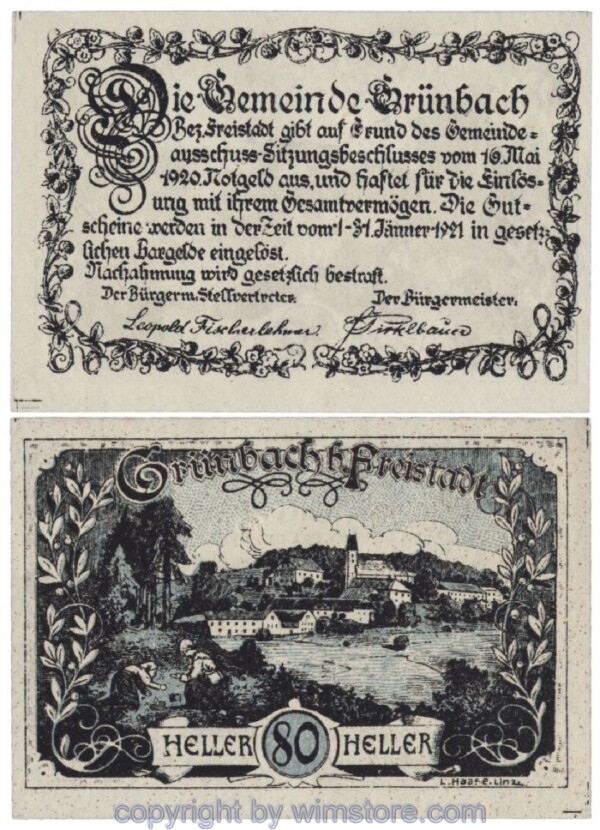 Die Gemeinde Grünbach
Bez. Freistadt gibt auf Grund des Gemeinde=
ausschuss-Sitzungsbeschlusses vom 16. Mai
1920. Notgeld aus, und haftet für die Einlös-
ung mit ihrem Gesamtvermögen. Die Gut-
scheine werden in der Zeit vom 1-31. Jänner 1921 in gesetz=
lichen Bargelde eingelöst.
Nachahmung wird gesetzlich bestraft.
Der Bürgerm. Stellvertreter: Der Bürgermeister:
Leopold Fischerlehner. Pirklbauer
Grünbach b. Freistadt
HELLER 80 HELLER
L. Haase. Linz.
copyright by wimstore.com